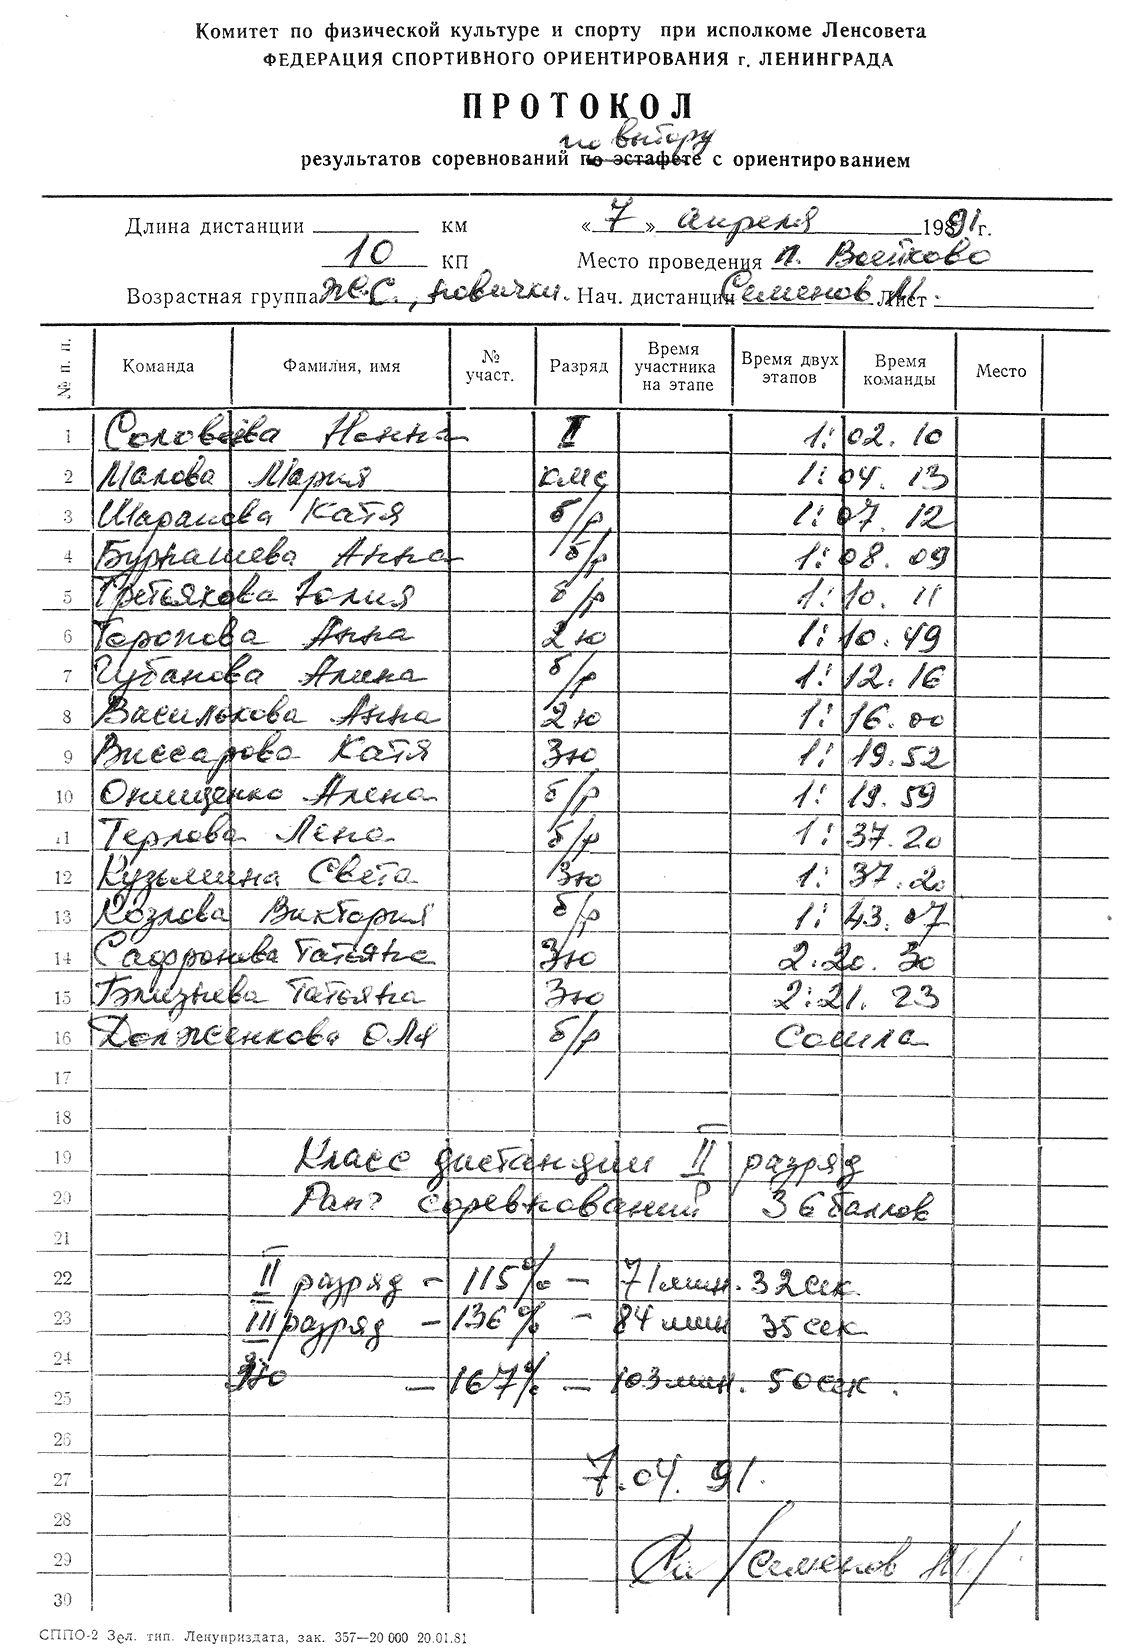 Комитет по физической культуре и спорту при исполкоме Ленсовета
ФЕДЕРАЦИЯ СПОРТИВНОГО ОРИЕНТИРОВАНИЯ г. ЛЕНИНГРАДА
ПРОТОКОЛ
по выбору
результатов соревнований по эстафете с ориентированием
Длина дистанции км « 7 » апреля 1991 г.
10 КП Место проведения п. Войтково
Возрастная группа Ж.С., новички. Нач. дистанции Семенов М. Лист
№ п. п. Команда Фамилия, имя № участ. Разряд Время участника на этапе Время двух этапов Время команды Место
1 Соловьёва Нонна II 1:02.10
2 Малова Мария кмс 1:04.13
3 Шарапова Катя б/р 1:07.12
4 Бурнашева Анна б/р 1:08.09
5 Третьякова Юлия б/р 1:10.11
6 Торопова Анна 2ю 1:10.49
7 Чубанова Алина б/р 1:12.16
8 Василькова Анна 2ю 1:16.00
9 Виссарова Катя 3ю 1:19.52
10 Онищенко Алена б/р 1:19.59
11 Терлова Лена б/р 1:37.20
12 Кузьмина Света 3ю 1:37.20
13 Козлова Виктория б/р 1:43.07
14 Сафронова Татьяна 3ю 2:20.30
15 Близнева Татьяна 3ю 2:21.23
16 Долженкова Оля б/р Сошла
17
18
19 Класс дистанции II разряд
20 Ранг соревнований 36 баллов
21
22 II разряд - 115% - 71 мин. 32 сек.
23 III разряд - 136% - 84 мин 35 сек
24 3ю - 167% - 103 мин. 50 сек.
25
26
27 7.04.91.
28
29 /Семенов М./
30
СППО-2 Зел. тип. Ленуприздата, зак. 357—20 000 20.01.81